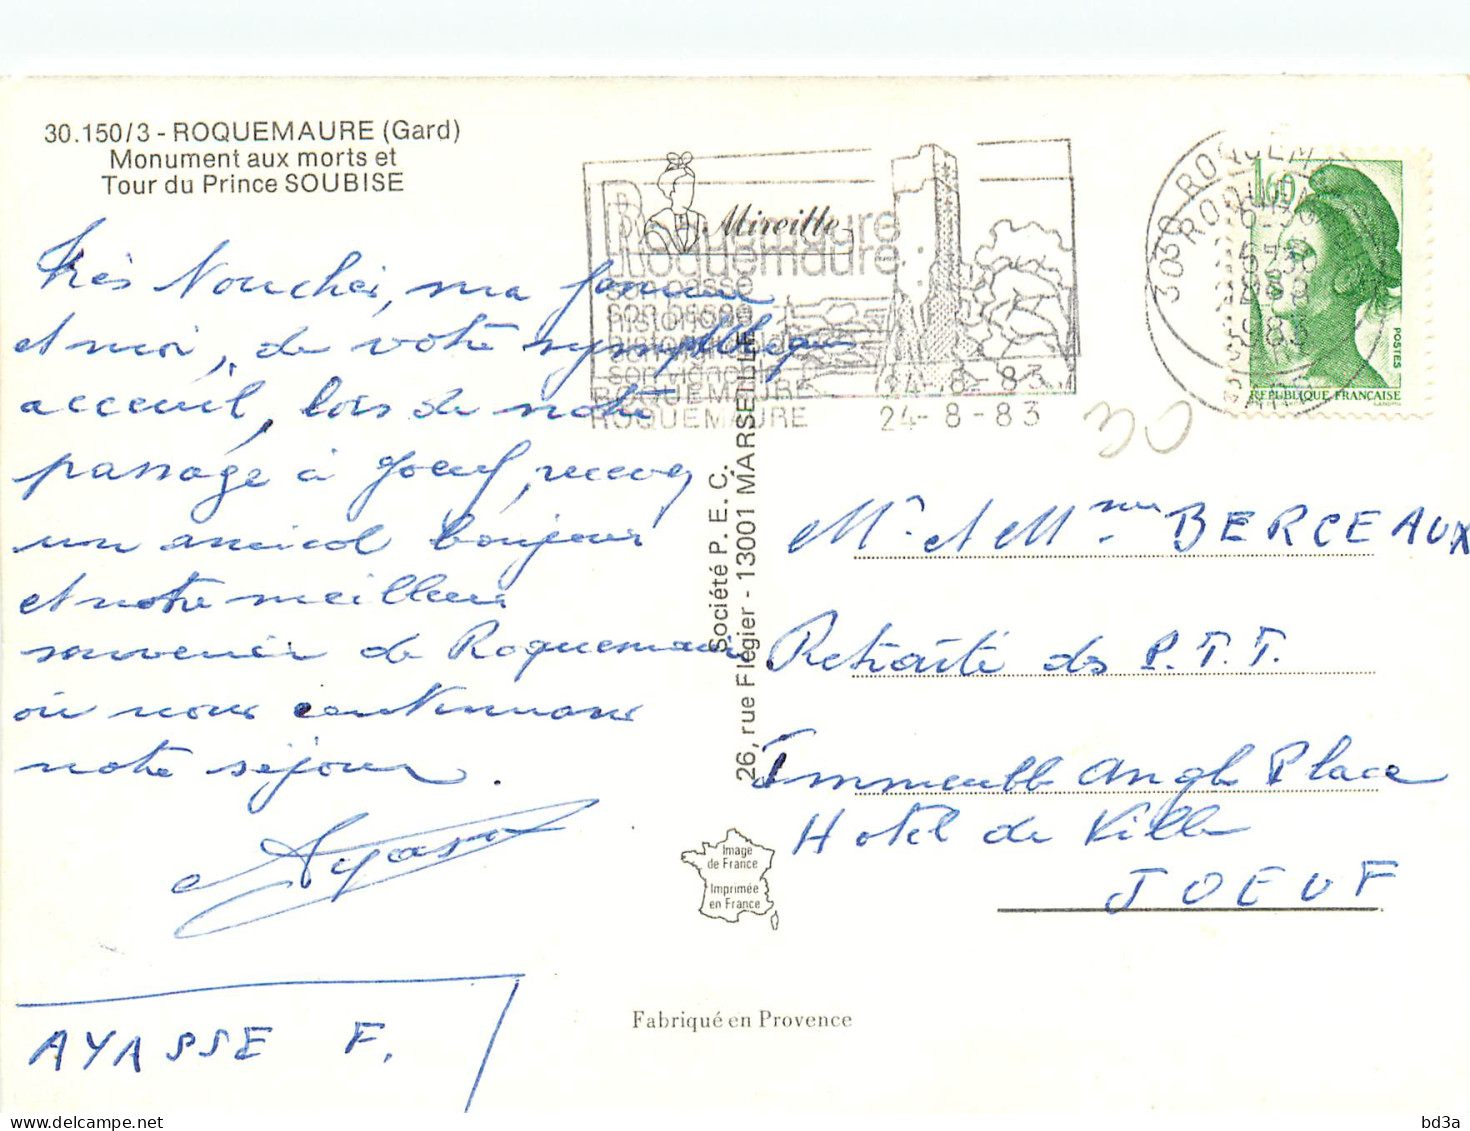 30.150/3 - ROQUEMAURE (Gard)
Monument aux morts et
Tour du Prince SOUBISE
Très Nouchés, ma femme
et moi, de votre sympathique
acceuil, lors de notre
passage à Joeuf, recevez
un amical bonjour
et notre meilleur
souvenir de Roquemaure
où nous continuons
notre séjour.
Ayasse
AYASSE F.
Mireille
Roquemaure
son passé
historique
son vignoble
ROQUEMAURE
24-8-83
ROQUEMAURE
24-8-83
30 ROQUEM
1983
1,60
POSTES
REPUBLIQUE FRANCAISE
Société P. E. C.
26, rue Flégier - 13001 MARSEILLE
Mr et Mme BERCEAUX
Retraité des P.T.T.
Immeuble Angle Place
Hotel de Ville
JOEUF
Image
de France
Imprimée
en France
Fabriqué en Provence
bd3a